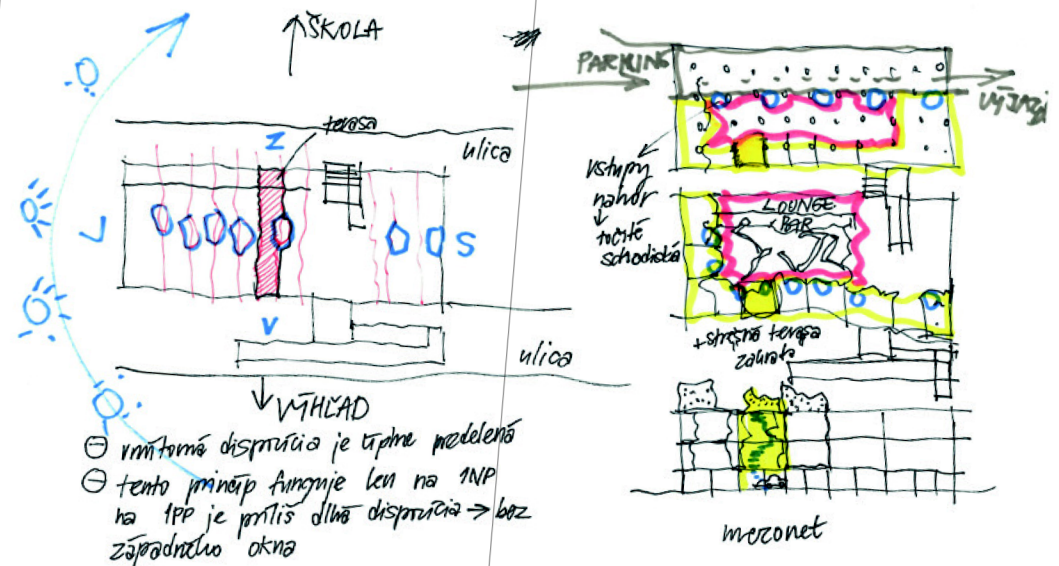 ŠKOLA
terasa
Z
ulica
J
S
V
ulica
VÝHĽAD
⊖ vnútorná dispozícia je úplne predelená
⊖ tento princíp funguje len na 1NP
na 1PP je príliš dlhá dispozícia → bez
západného okna
PARKING
VÝJAZD
vstupy
nahor
točité
schodiská
LOUNGE
BAR
+ strešná terasa
záhrada
mezonet